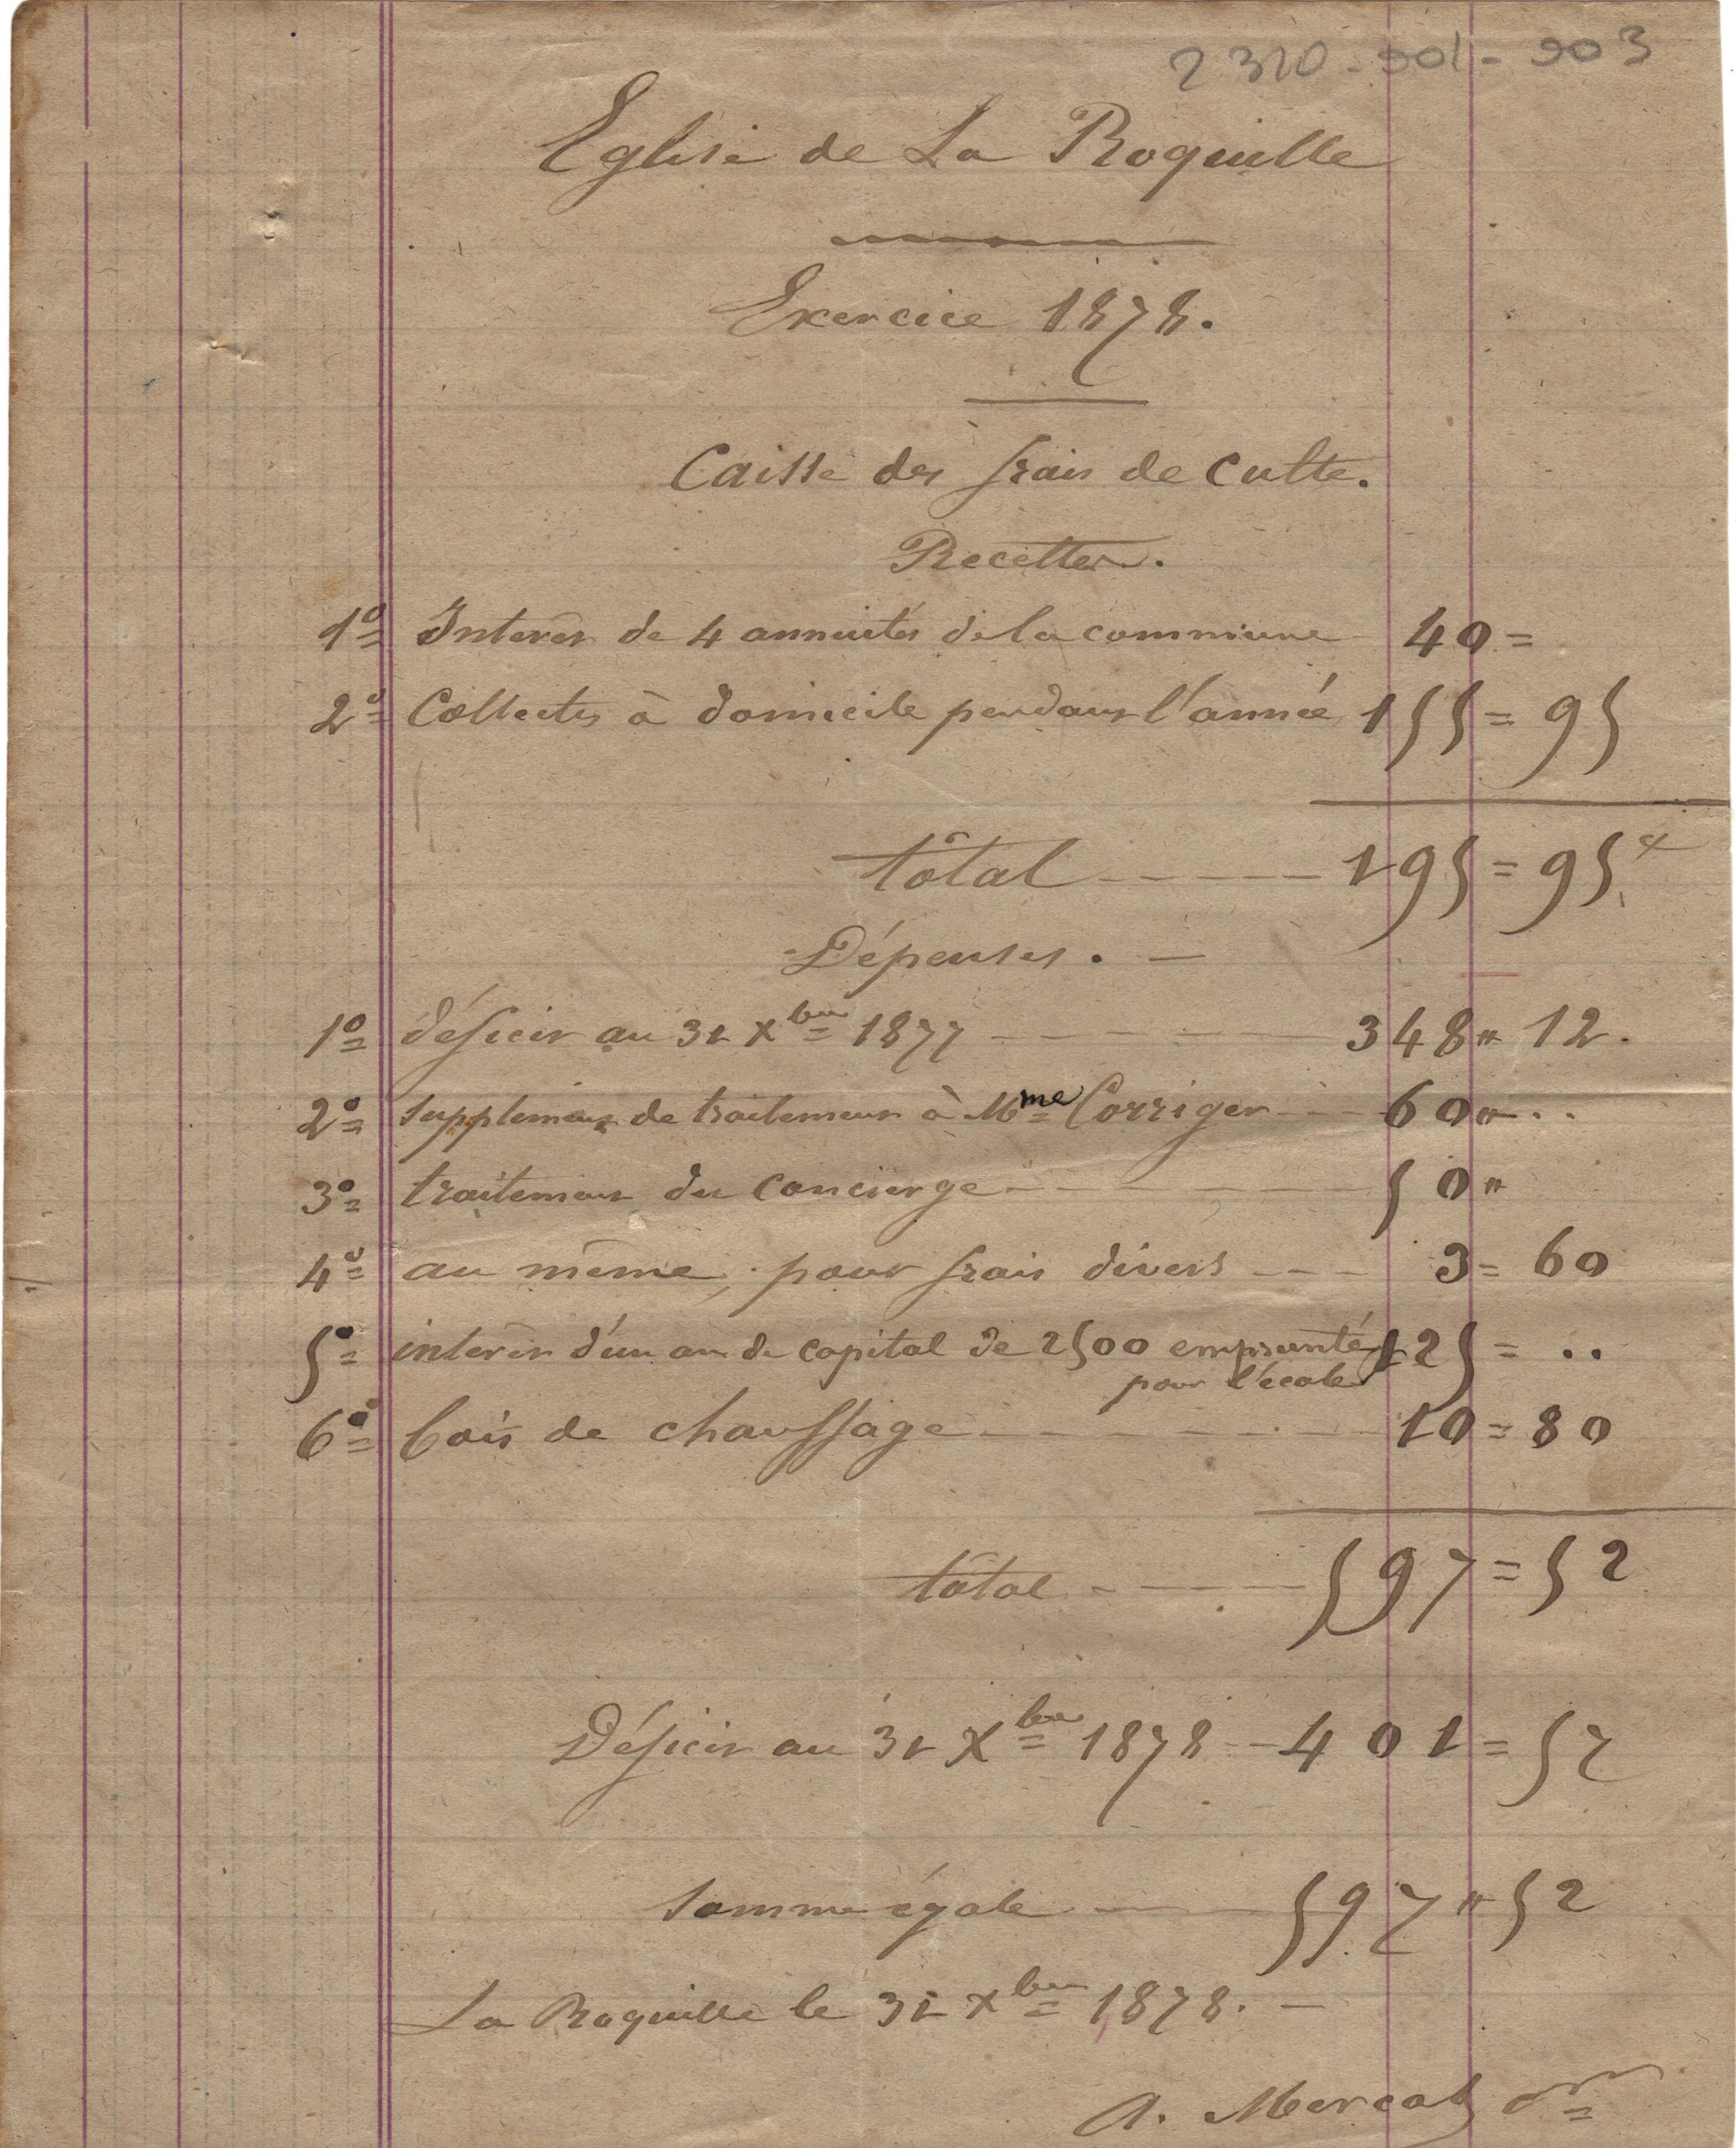 2320-901-903
Eglise de La Roquille
Exercice 1878.
Caisse des frais de culte.
Recettes.
1º Interêt de 4 annuités de la commune 40 =
2º Collectes à domicile pendant l'année 155 = 95
total ----- 195 = 95
Dépenses. —
1º déficit au 31 Xbre 1877 --- 348 " 12.
2º supplément de traitement à Mme Corriger --- 60 " ..
3º traitement du concierge --- 50 "
4º au même, pour frais divers --- 3 = 60
5º interêt d'un an de capital de 2500 emprunté 125 = ..
pour l'école
6º bois de chauffage --- 10 = 80
total ---- 597 = 52
Déficit au 31 Xbre 1878 -- 401 = 52
somme égale --- 597 " 52
La Roquille le 31 Xbre 1878. —
A. Mercat